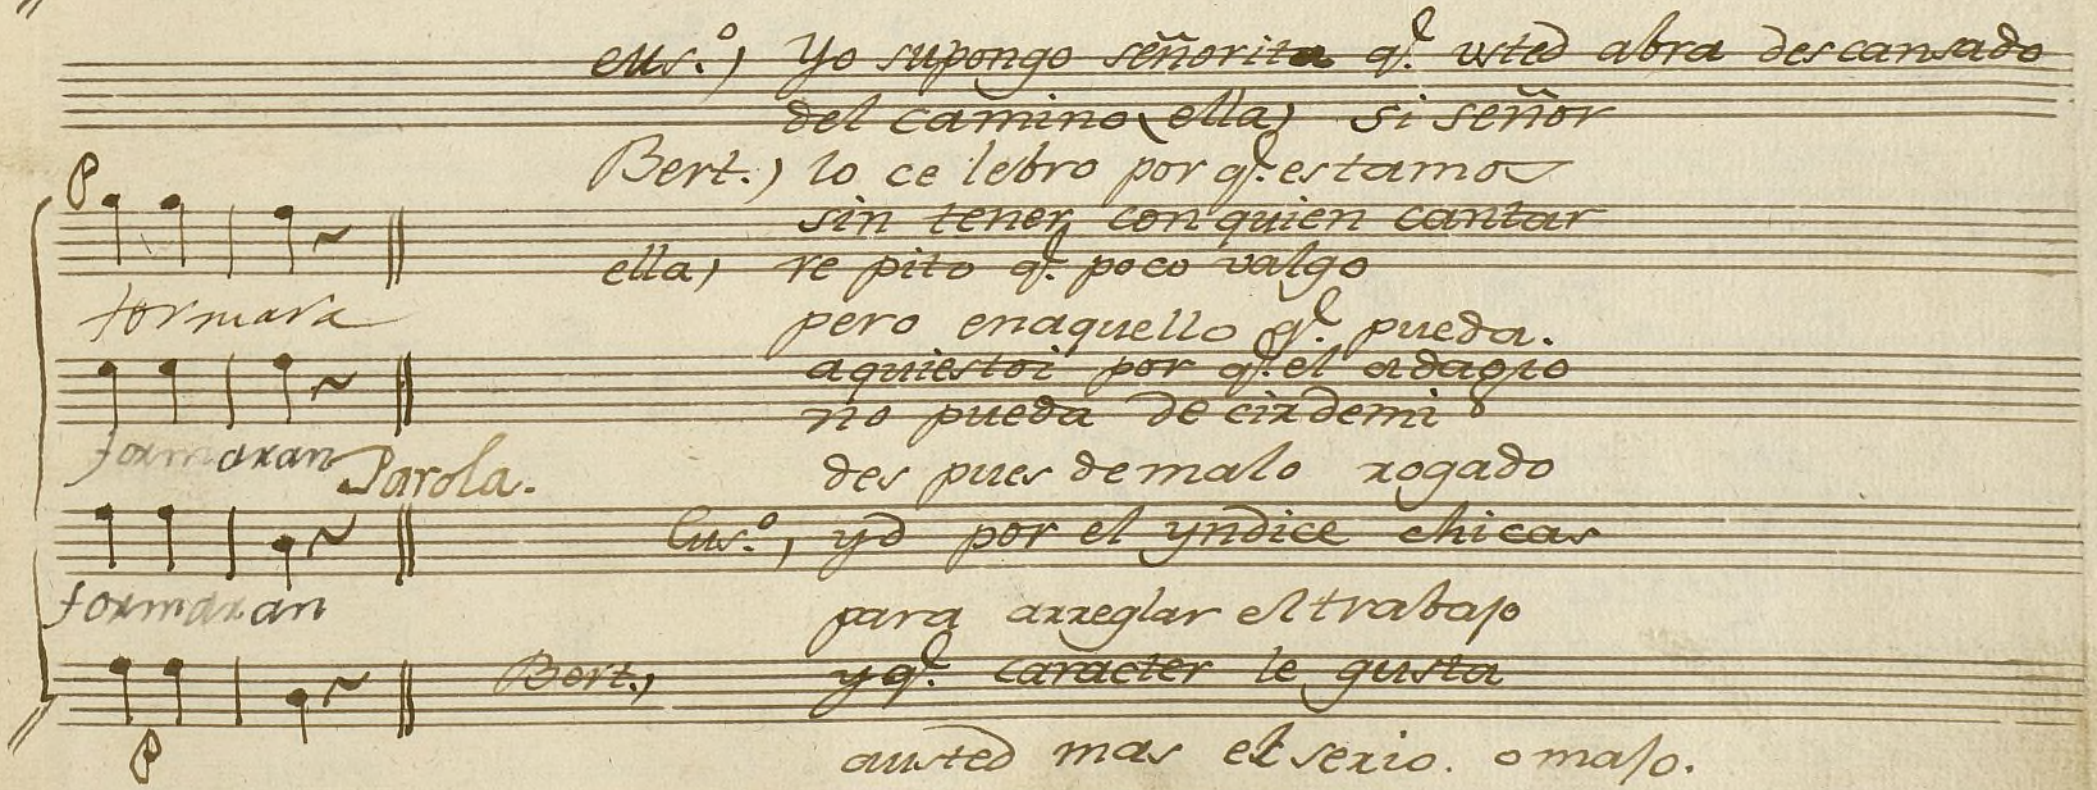 eus.º) Yo supongo señorita q.e usted abra descansado
del camino (ella) si señor
Bert.) lo ce lebro por q.e estamos
sin tener con quien cantar
ella) re pito q.e poco valgo
formara
pero enaquello q.e pueda.
aquiestoi por q.e el adagio
no pueda de cirdemi
formaran Parola.
des pues de malo rogado
Eus.º, yo por el yndice chicas
formaran
para arreglar el trabajo
Bert.) y q.e caracter le gusta
austed mas el serio. o majo.